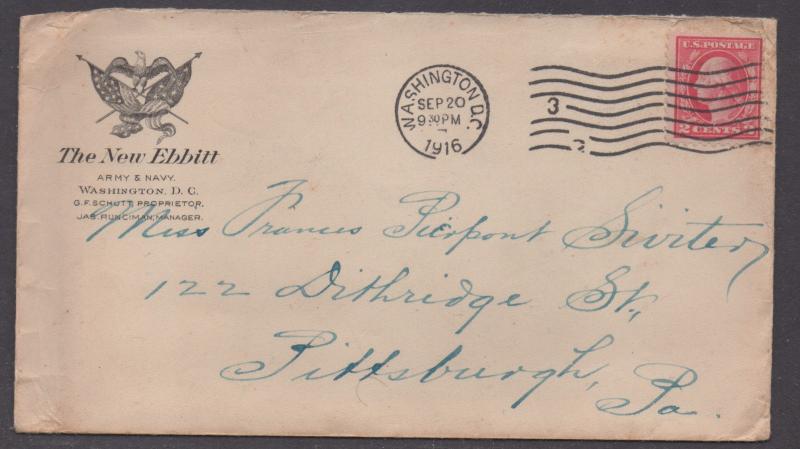 The New Ebbitt
ARMY & NAVY.
WASHINGTON, D. C.
G. F. SCHUTT PROPRIETOR.
JAS. RUNCIMAN, MANAGER.
WASHINGTON D.C.
SEP 20
9 30 PM
1916
3
U.S. POSTAGE
2 CENTS 2
Miss Frances Pierpont Siviter
122 Dithridge St.,
Pittsburgh,
Pa.